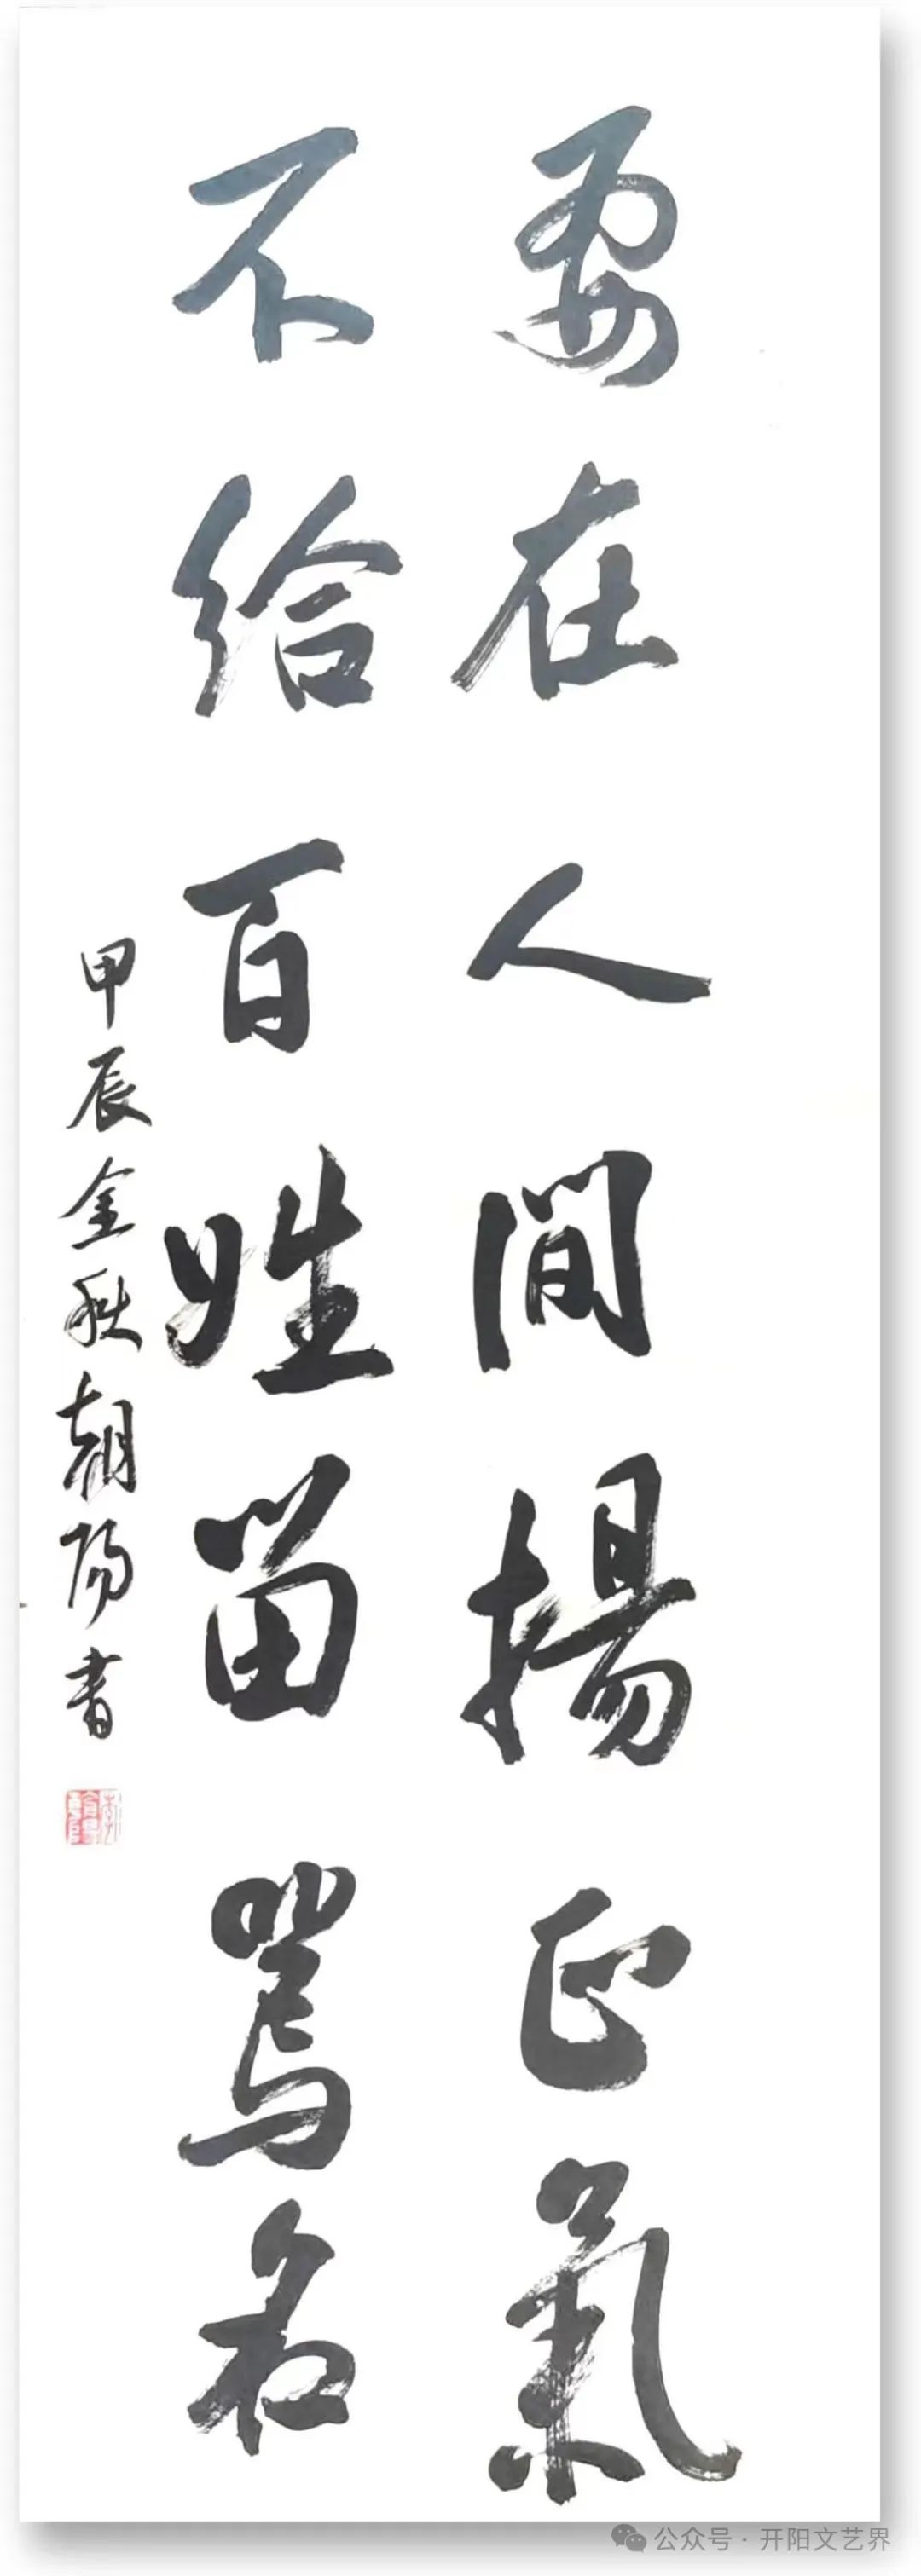 要在人間揚正氣
不給百姓留駡名
甲辰金秋朝陽书
公众号·开阳文艺界